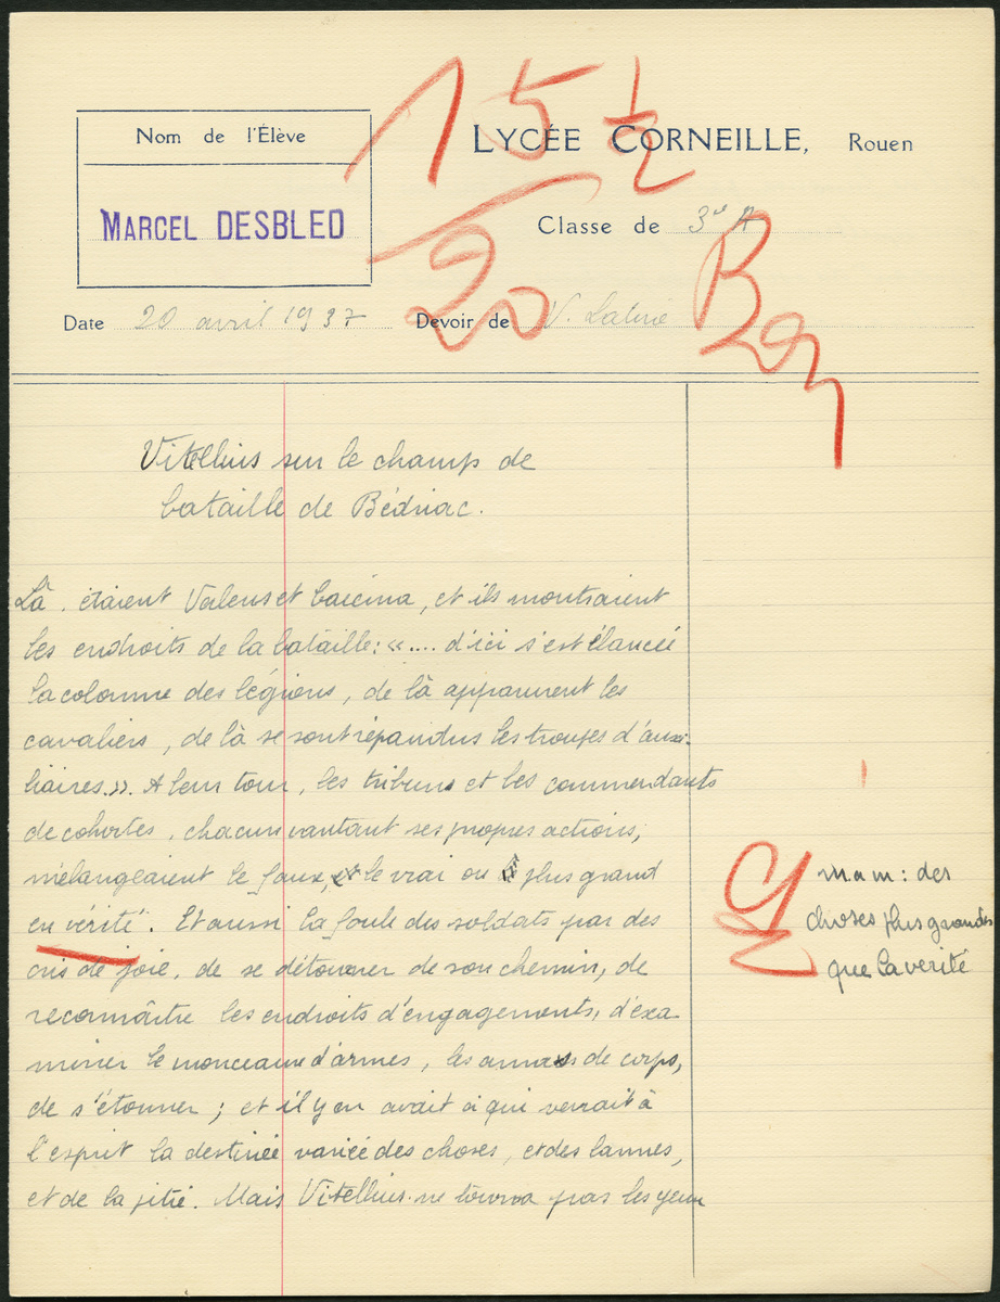 15 1/2
20
Bon
Nom de l'Élève
MARCEL DESBLED
LYCÉE CORNEILLE, Rouen
Classe de 3e A
Date 20 avril 1937
Devoir de V. Latine
Vitellius sur le champ de
bataille de Bédriac.
Là étaient Valens et Caecina, et ils montraient
les endroits de la bataille: «.... d'ici s'est élancée
la colonne des légions, de là apparurent les
cavaliers, de là se sont répandus les troupes d'auxi-
liaires.». A leur tour, les tribuns et les commendants
de cohortes, chacun vantant ses propres actions,
mélangeaient le faux, et le vrai ou plus grand
en vérité. Et aussi la foule des soldats par des
cris de joie, de se détourner de son chemin, de
reconnaître les endroits d'engagements, d'exa
miner le monceau d'armes, les amas de corps,
de s'étonner ; et il y en avait à qui venait à
l'esprit la destinée variée des choses, et des larmes,
et de la pitié. Mais Vitellius ne tourna pas les yeux
mam : des
choses plus grandes
que la verité